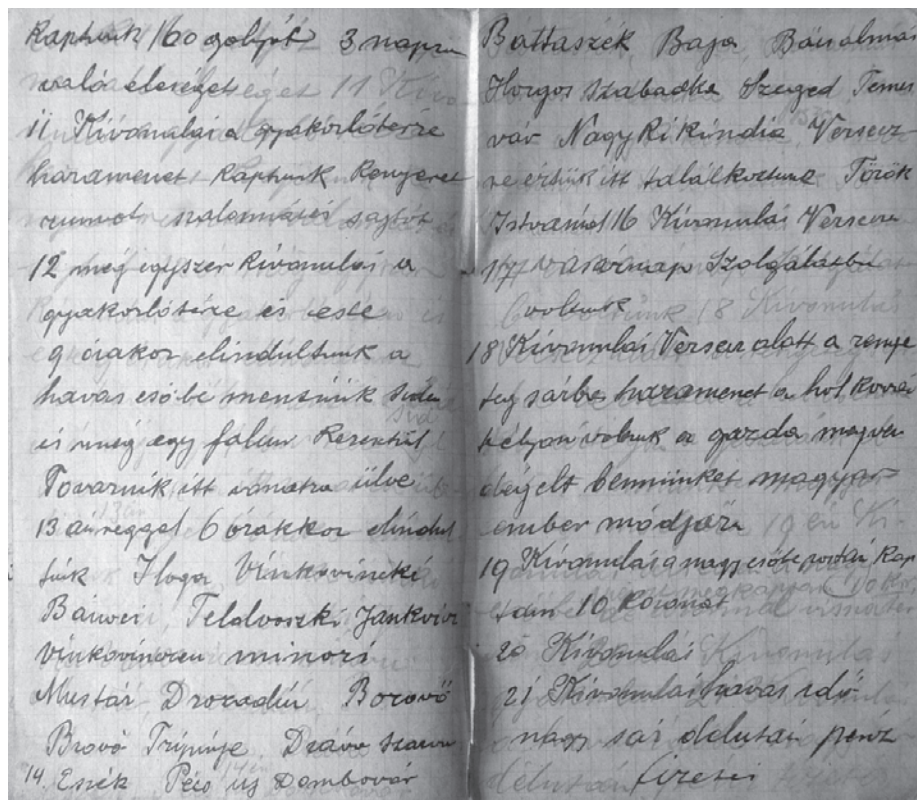 Kaptunk 160 golyót 3 napra
való eleséget
11 Kivonulás a gyakorlótérre
haramenet Kaptunk Kenyeret
szalonnát és sajtót
12 még egyszer kivonulás a
gyakorlótérre és este
9 órakor elindultunk a
havas esőbe mentünk
és még egy falun Keresztül
Tovarnik itt vonatra ülve
13 án reggel 6 órakkor elindul
tunk Iloga Vinkovineki
Jankovic
minori
Mustár Borovó
Brovó
14. Eszék Pécs új Dombovár
Báttaszék, Baja, Bácsalmás
Horgos Szabadka Szeged Temes
vár Nagykikindia Versecz
re értünk itt találkoztunk Török
Istvánnal 16 Kivonulás Versecre
17 vasárnap Szolgálatba
voltunk
18 Kivonulás Versecz alatt a renge
teg sárba haramenet a hol
voltunk a gazda megven
dégelt bennünket magyar
ember módjára
19 Kivonulás a nagy esőbe postán Kap
tam 10 Koronát
20 Kivonulás
21 Kivonulás havas idő
nagy sár délután pénz
fizetés